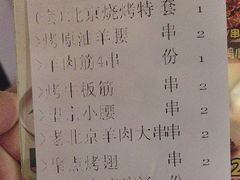 (套)北京烧烤特 套 1
>烤原油羊腰 串 2
>羊肉筋4串 份 1
>烤牛板筋 串 2
>北京小腰 串 2
>老北京羊肉大串 串 2
>烤翅 串 2
份